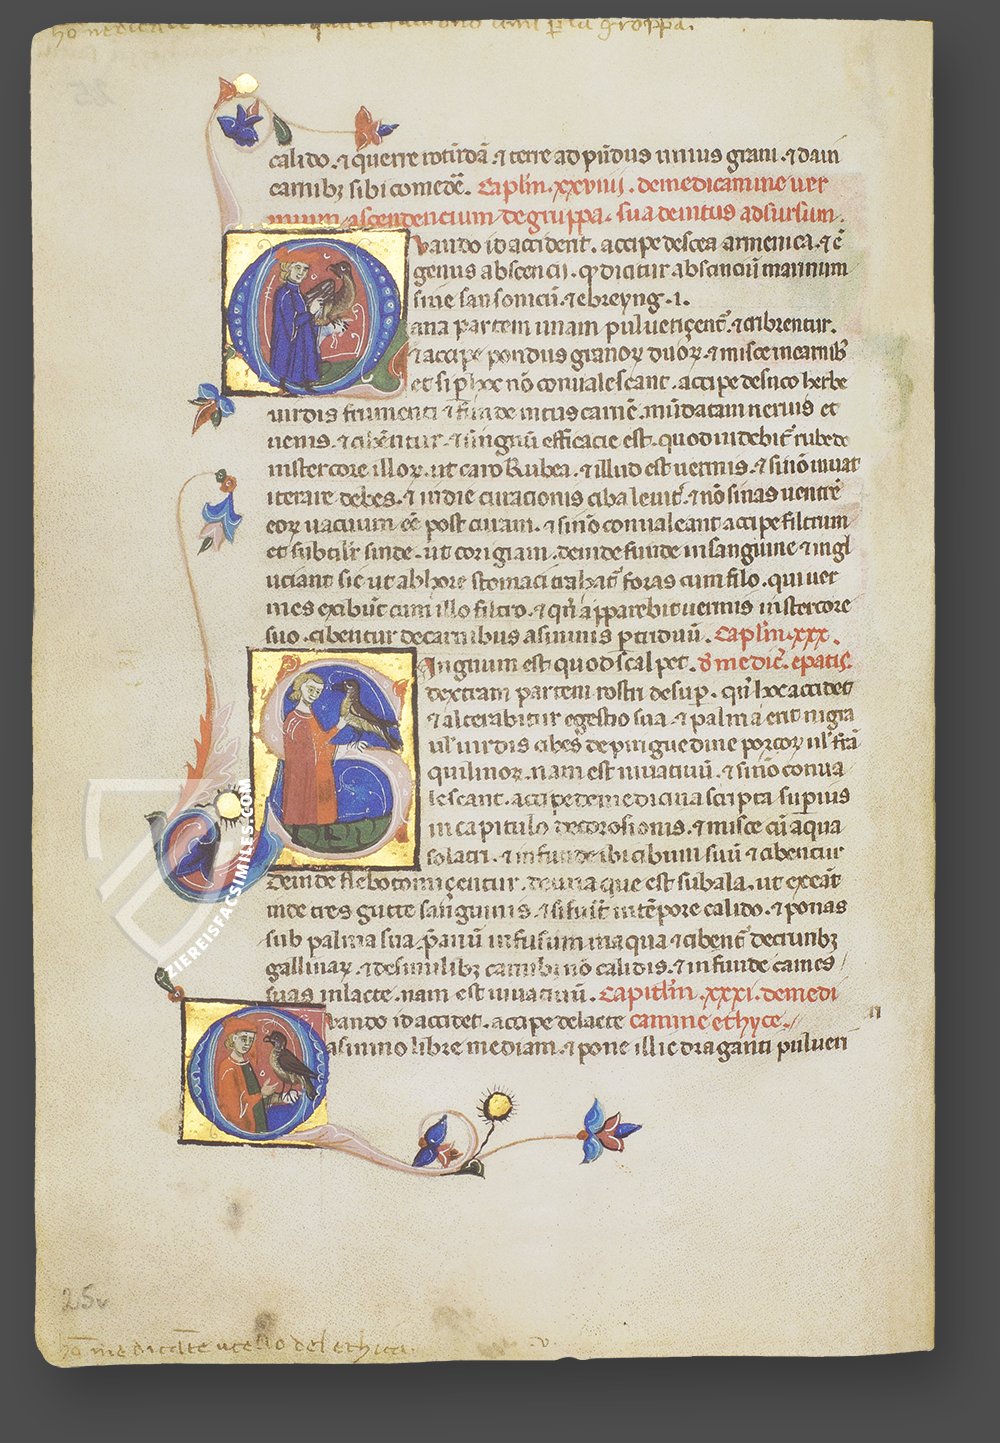 ho medicate
p la groppa.
calido. ⁊ querre rotūdā ⁊ terre ad pūdus unius grani. ⁊ da in
carnibꝫ sibi comedē. Caplm. xxviiij. de medicamine ver
mium ascendencium de gruppa. sua deintus ad sursum.
Quando id accident. accipe de scea armenica. ⁊ ē
genus abscencii. qd dicitur absinciū marinum
siue sansonicū. ⁊ ebreyng. i.
ana partem unam puluericent᷑. ⁊ cibrentur.
⁊ accipe pondus granoꝝ duoꝝ. ⁊ misce in carnibꝫ
et si p hec nō conualescant. accipe de suco herbe
uirdis frumenti ⁊ fūde intus carnē. mūdatam neruis et
uenis. ⁊ cibentur. ⁊ singnū efficacie est. quod uidebit᷑ rubedo
in stercore illoꝝ. ut caro Rubea. ⁊ illud est uermis. ⁊ si nō iuuat
iterare debes. ⁊ in die curacionis ciba leuit᷑. ⁊ nō sinas uentrē
eoꝝ uacuum eē post curam. ⁊ si nō conualeant accipe filtrum
et subtilit᷑ sinde. ut corigiam. deinde funde in sanguine ⁊ ingl
uciant sic ut ab hore stomaci trahat᷑ foras cum filo. qui uer
mes exibūt cum illo filtro. ⁊ qn̄ apparebit uermis in stercore
suo. cibentur de carnibus asininis p triduū. Caplm. xxx.
Singnum est quod scalpet. d' medic̄. epatis.
dextram partem rostri desup. qn̄ hoc accidet
⁊ alterabitur egestio sua. ⁊ palma erit nigra
ul' uirdis cibes de pinguedine porcoꝝ ul' frā
quilinoꝝ. nam est iuuatiuū. ⁊ si nō conua
lescant. accipe de medicina scripta supius
in capitulo de corosionis. ⁊ misce cū aqua
solatri. ⁊ infunde ibi cibum suū ⁊ cibentur
Deinde flebotomicentur. de una que est sub ala. ut exeāt
inde tres gutte sanguinis. ⁊ si fu'it in tēpore calido. ⁊ ponas
sub palma sua. pānū infusum in aqua ⁊ cibent᷑ de crunbꝫ
gallinaꝝ. ⁊ de similibꝫ carnibꝫ nō calidis. ⁊ infunde carnes
suas in lacte. nam est iuuatiuū. Capitlm. xxxi. de medi
Quando id accidet. accipe de lacte camine ethyce.
asinino libre mediam. ⁊ pone illic draganti pulueri
25v
ho medicate ucello del ethica.
ZIEREISFACSIMILES.COM